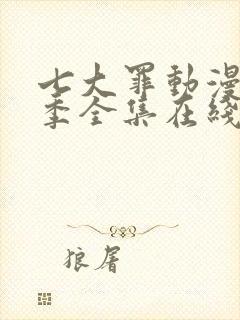 七大罪動漫
季全集在綫
狼屠